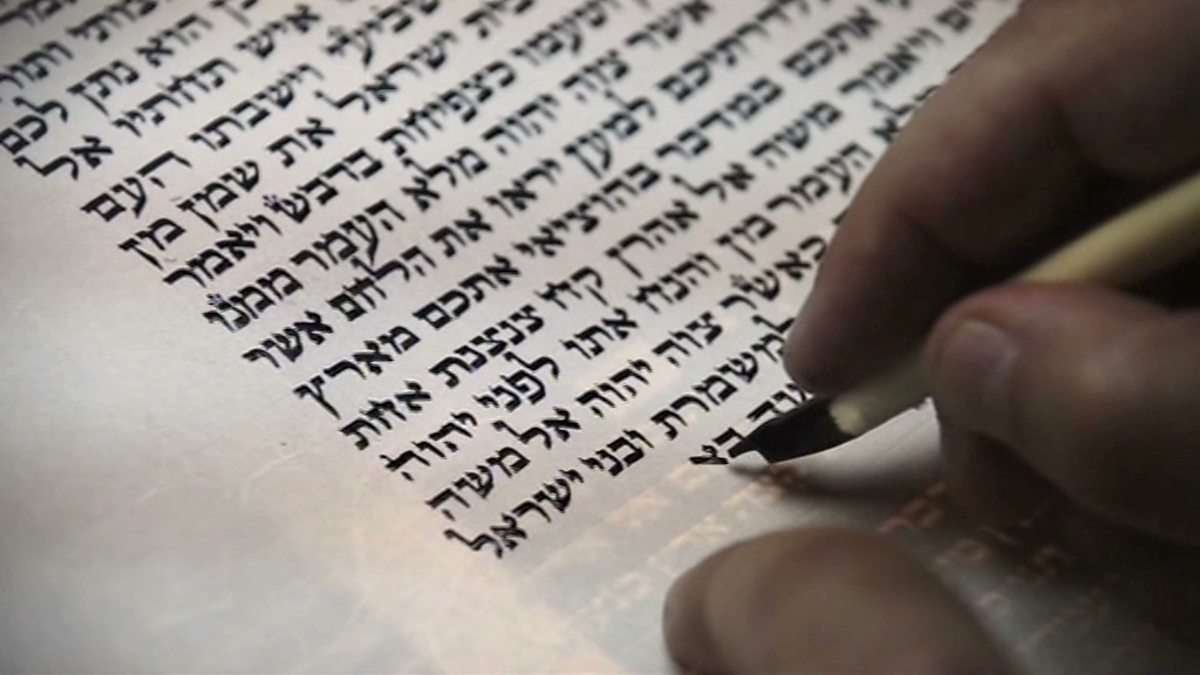 ותור
הוא נתן לכם
איש תחתיו אל
וישבתו העם
בית ישראל את שמן מן
וטעמו כצפיחת בדבש ויאמר
אשר צוה יהוה מלא העמר ממנו
לדרתיכם למען יראו את הלחם אשר
אתכם במדבר בהוציאי אתכם מארץ
ויאמר משה אל אהרן קח צנצנת אחת
העמר מן והנח אתו לפני יהוה
כאשר צוה יהוה אל משה
למשמרת ובני ישראל